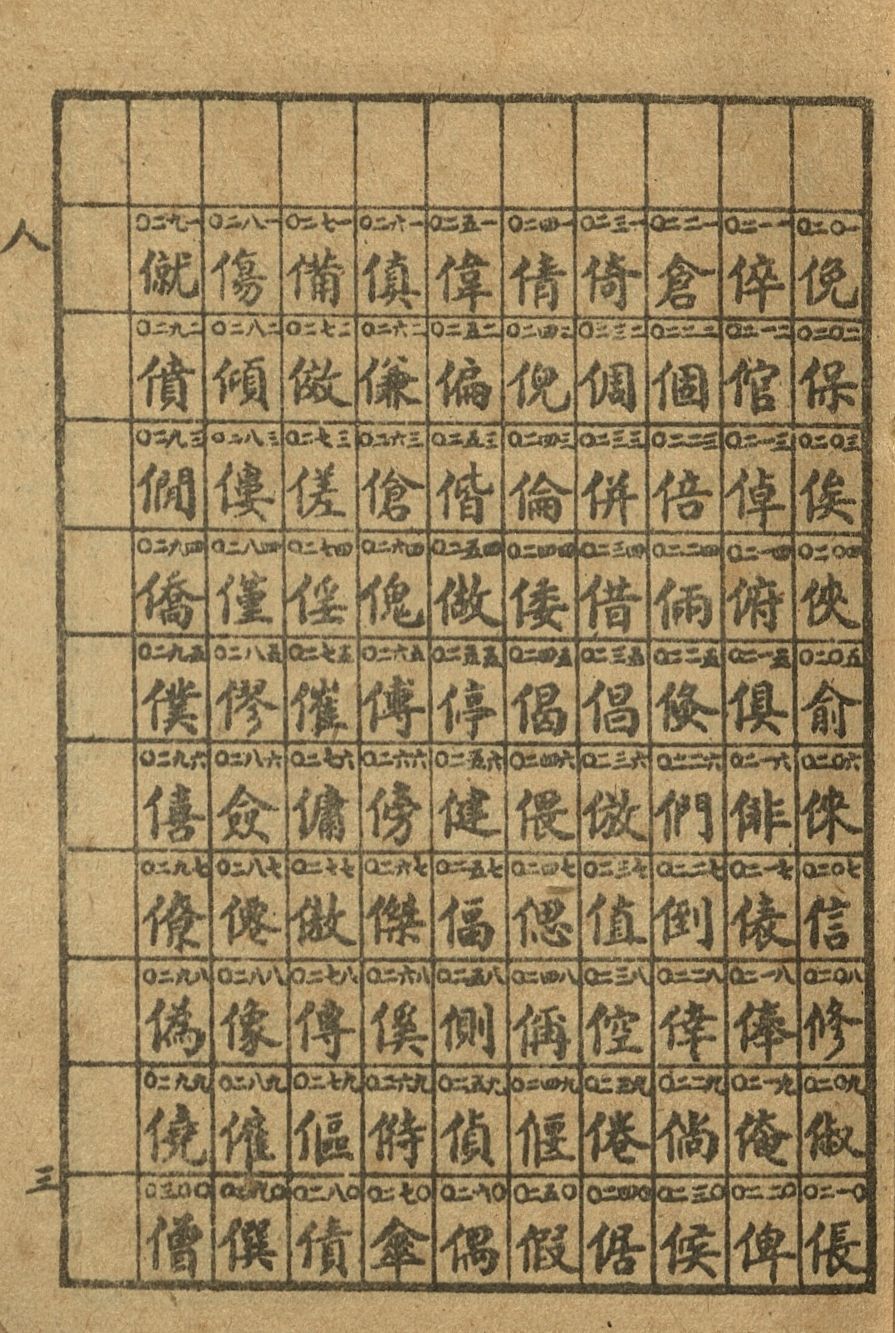 人
三
〇二〇一
俛
〇二〇二
保
〇二〇三
俟
〇二〇四
俠
〇二〇五
俞
〇二〇六
俫
〇二〇七
信
〇二〇八
修
〇二〇九
俶
〇二一〇
倀
〇二一一
倅
〇二一二
倌
〇二一三
倬
〇二一四
俯
〇二一五
俱
〇二一六
俳
〇二一七
俵
〇二一八
俸
〇二一九
俺
〇二二〇
俾
〇二二一
倉
〇二二二
個
〇二二三
倍
〇二二四
倆
〇二二五
倐
〇二二六
們
〇二二七
倒
〇二二八
倖
〇二二九
倘
〇二三〇
候
〇二三一
倚
〇二三二
倜
〇二三三
倂
〇二三四
借
〇二三五
倡
〇二三六
倣
〇二三七
值
〇二三八
倥
〇二三九
倦
〇二四〇
倨
〇二四一
倩
〇二四二
倪
〇二四三
倫
〇二四四
倭
〇二四五
偈
〇二四六
偎
〇二四七
偲
〇二四八
偁
〇二四九
偃
〇二五〇
假
〇二五一
偉
〇二五二
偏
〇二五三
偕
〇二五四
做
〇二五五
停
〇二五六
健
〇二五七
偪
〇二五八
側
〇二五九
偵
〇二六〇
偶
〇二六一
傎
〇二六二
傔
〇二六三
傖
〇二六四
傀
〇二六五
傅
〇二六六
傍
〇二六七
傑
〇二六八
傒
〇二六九
〇二七〇
傘
〇二七一
備
〇二七二
傚
〇二七三
傞
〇二七四
傜
〇二七五
催
〇二七六
傭
〇二七七
傲
〇二七八
傳
〇二七九
傴
〇二八〇
債
〇二八一
傷
〇二八二
傾
〇二八三
僂
〇二八四
僅
〇二八五
僇
〇二八六
僉
〇二八七
僊
〇二八八
像
〇二八九
傕
〇二九〇
僎
〇二九一
僦
〇二九二
僨
〇二九三
僩
〇二九四
僑
〇二九五
僕
〇二九六
僖
〇二九七
僚
〇二九八
僞
〇二九九
僥
〇三〇〇
僧